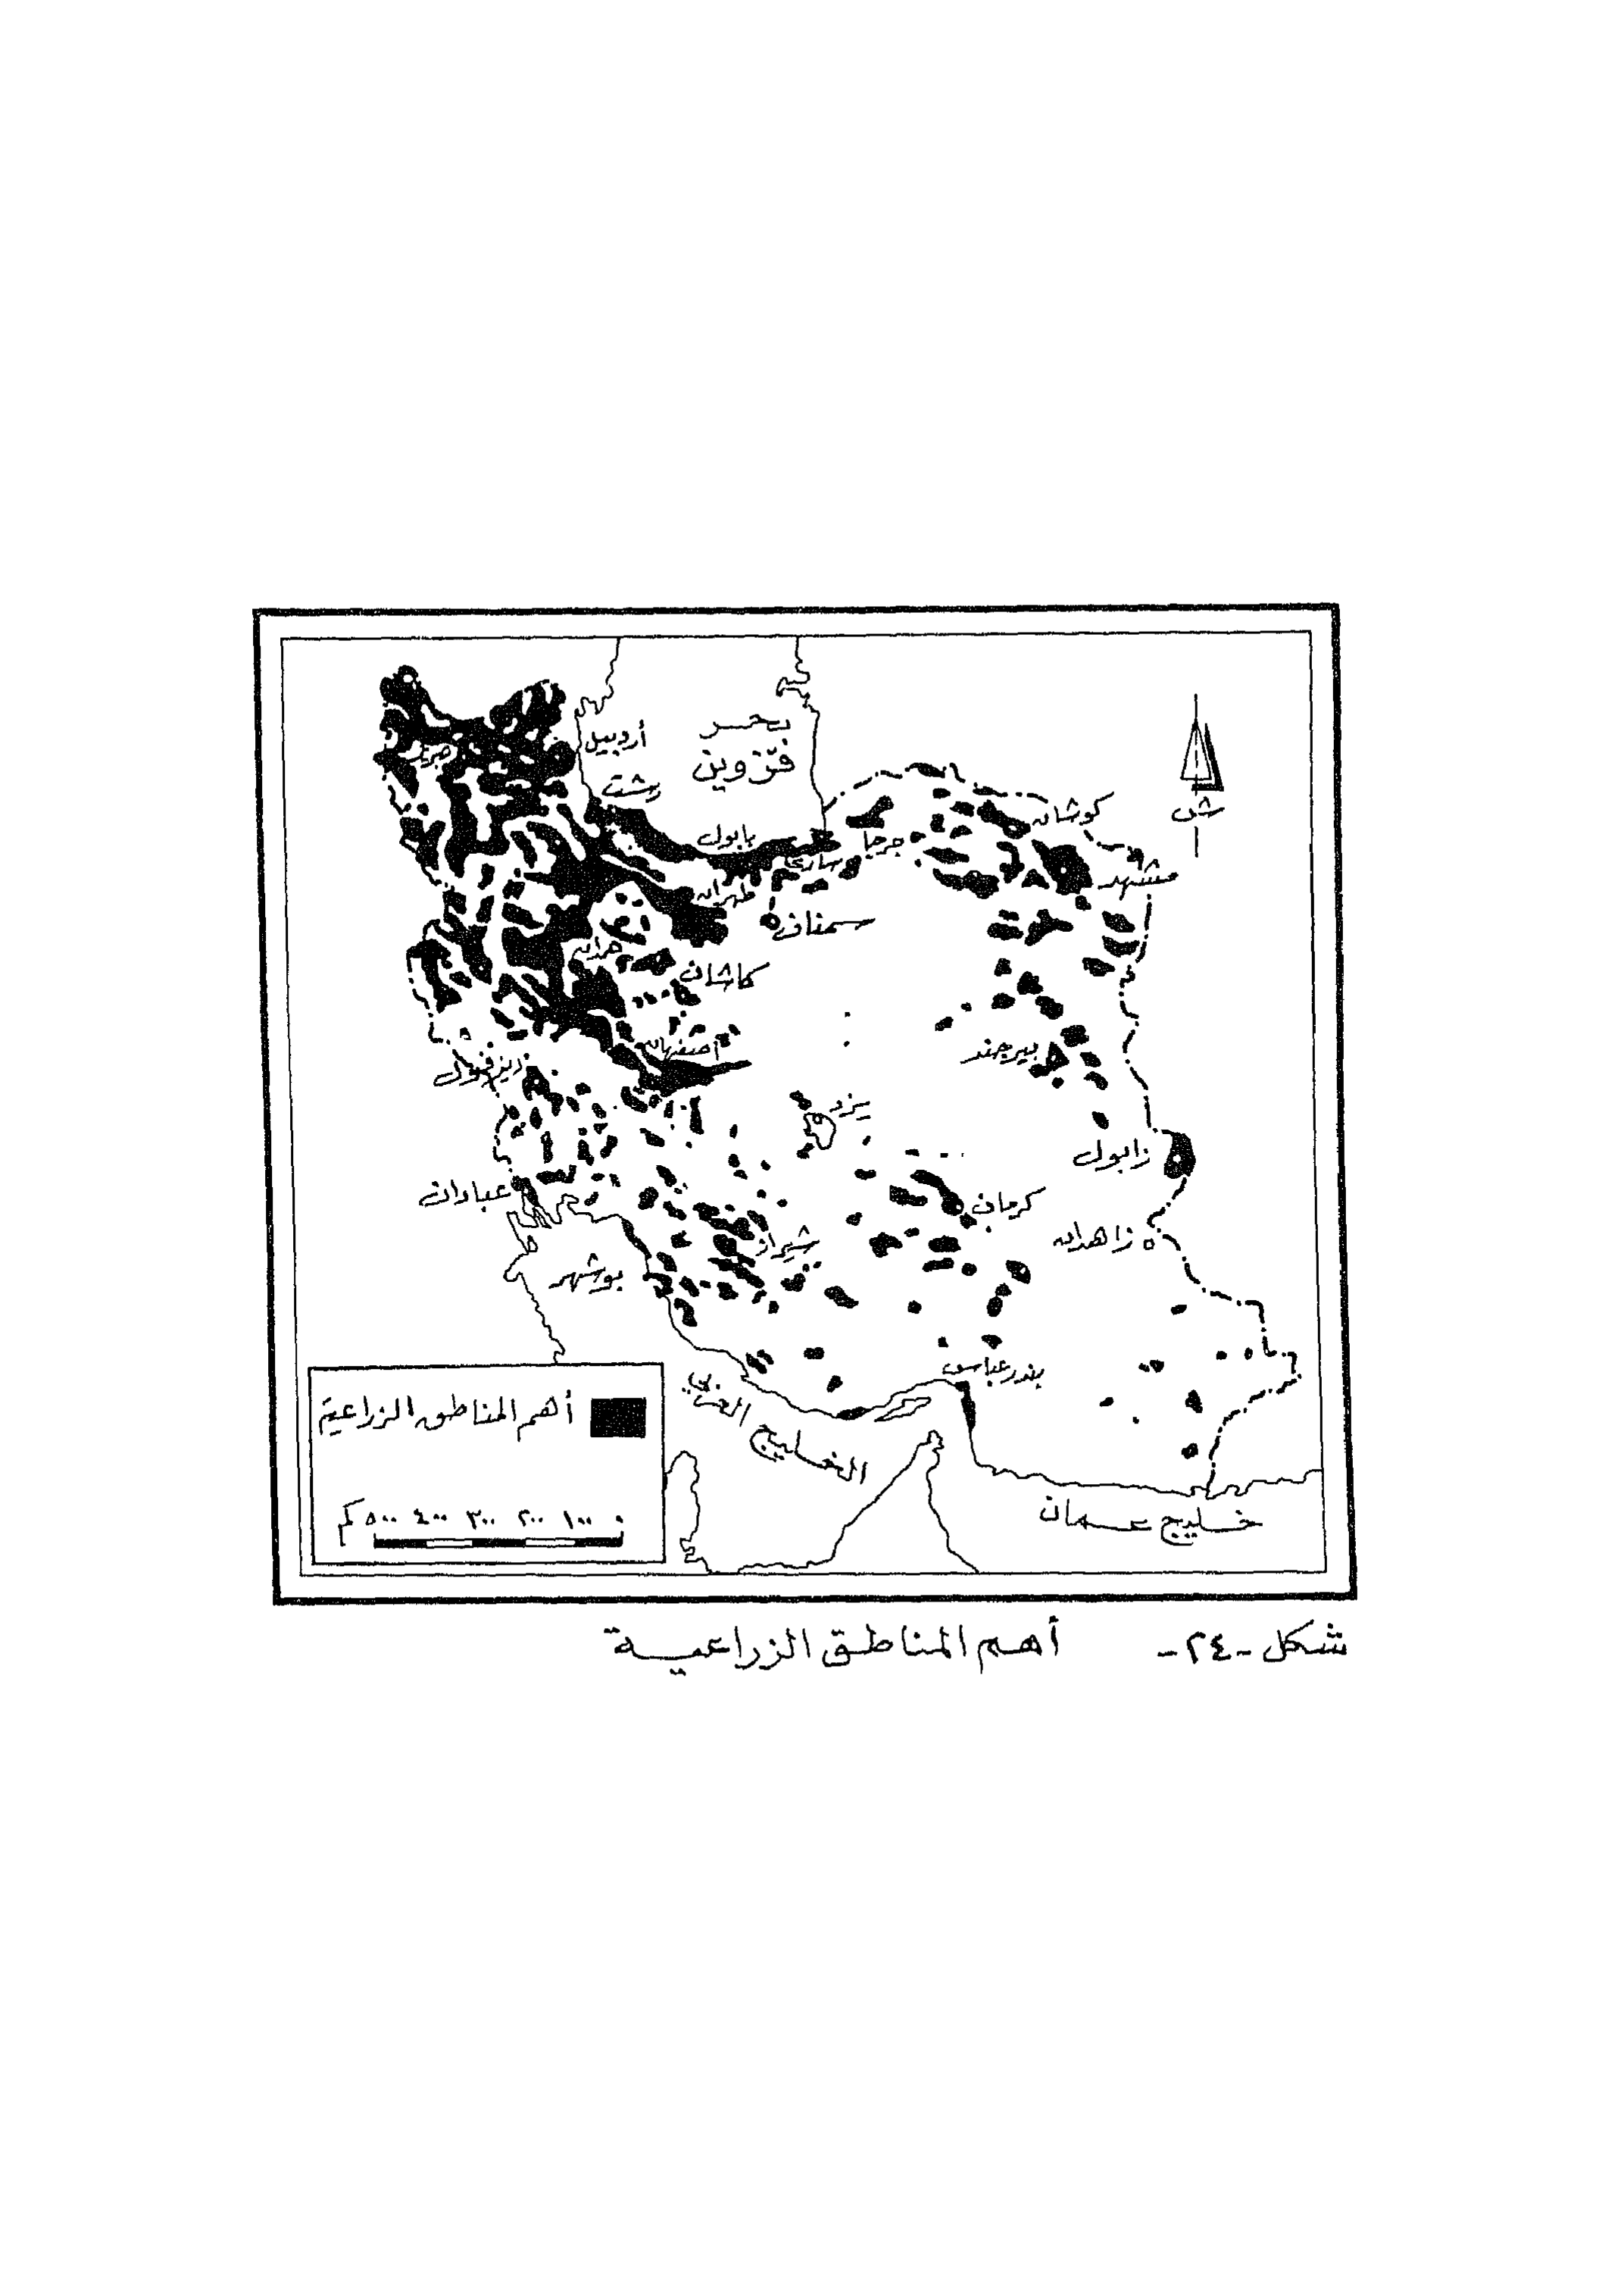 بحر
قزوين
أردبيل
رشت
بابول
ساري
جرجا
كوشان
مشهد
ش
طهران
سمنان
همدان
كاشان
اصفهان
ديزفول
بيرجند
يزد
زابول
عبادان
كرمان
زاهدان
شيراز
بوشهر
بندر عباس
الخليج العربي
خليج عمان
أهم المناطق الزراعية
٠ ١٠٠ ٢٠٠ ٣٠٠ ٤٠٠ ٥٠٠ كم
شكل -٢٤- أهم المناطق الزراعية